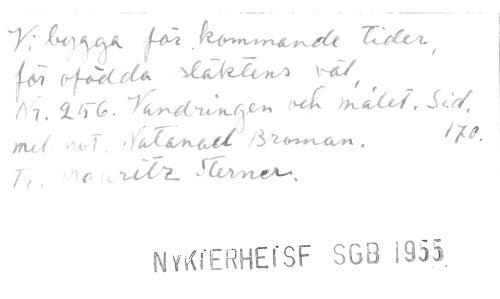 Vi bygga för kommande tider,
för ofödda släktens väl,
Nr. 256. Vandringen och målet. Sid. 170.
mel. not. Natanael Broman.
Fr. Mauritz Sterner.
NYKTERHETSF SGB 1955